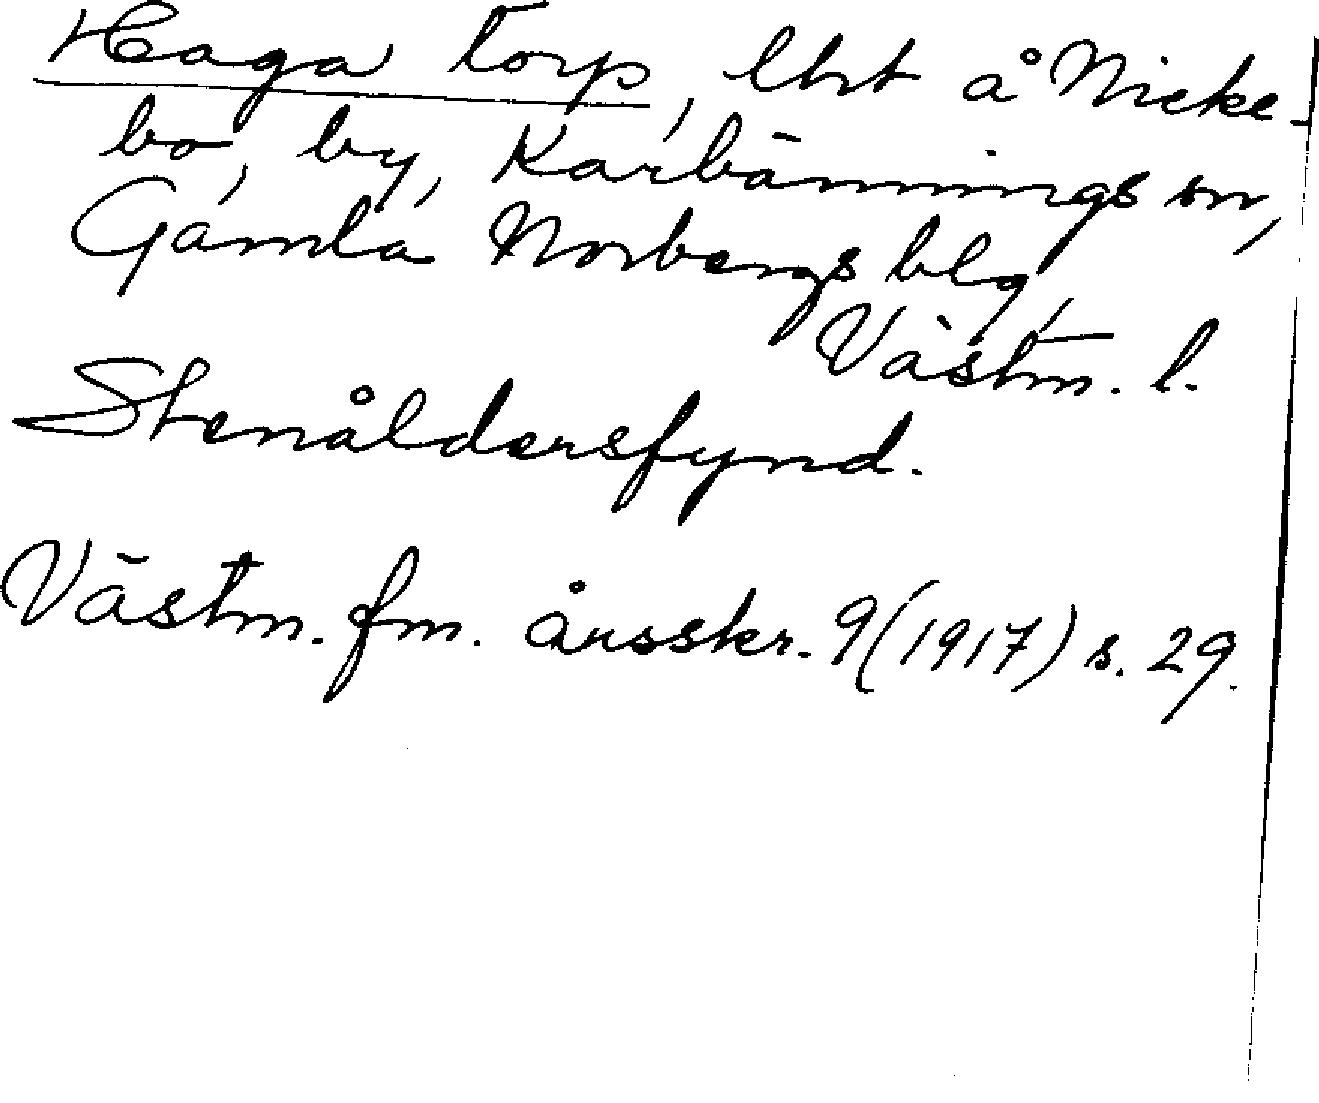 Haga torp, lht å Nicke-
bo, by, Karbännings sn,
Gamla Norbergs blg,
Västm. l.
Stenåldersfynd.
Västm. fm. årsskr. 9 (1917) s. 29.